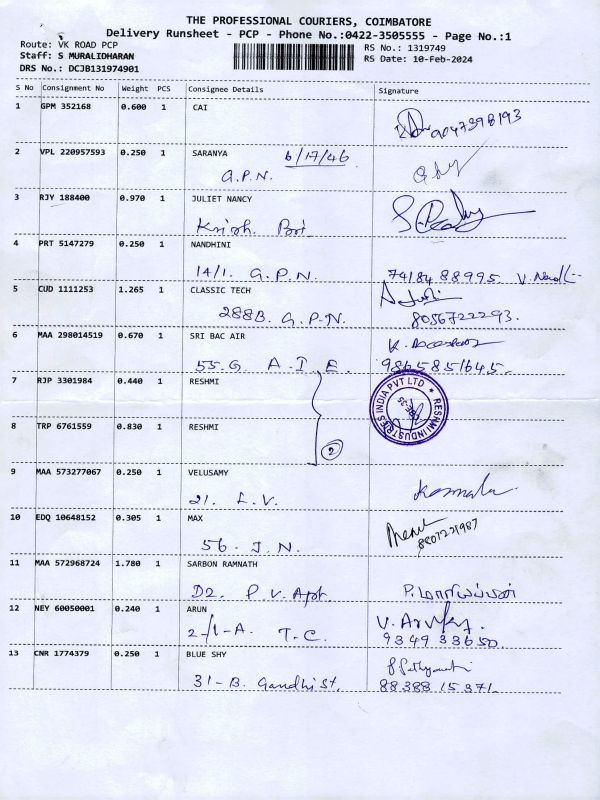 THE PROFESSIONAL COURIERS, COIMBATORE
Delivery Runsheet - PCP - Phone No.:0422-3505555 - Page No.:1
Route: VK ROAD PCP
RS No.: 1319749
Staff: S MURALIDHARAN
RS Date: 10-Feb-2024
DRS No.: DCJB131974901
S No Consignment No Weight PCS Consignee Details Signature
1 GPM 352168 0.600 1 CAI
9047398193
2 VPL 220957593 0.250 1 SARANYA 6/17/46
G.P.N.
3 RJY 188400 0.970 1 JULIET NANCY
4 PRT 5147279 0.250 1 NANDHINI
14/1. G.P.N. 74184 88995
5 CUD 1111253 1.265 1 CLASSIC TECH
288B. G.P.N. 8056722293.
6 MAA 298014519 0.670 1 SRI BAC AIR
55.G A.I.E. 9865851645.
7 RJP 3301984 0.440 1 RESHMI
RESHMI INDUSTRIES INDIA PVT LTD
8 TRP 6761559 0.830 1 RESHMI
2
9 MAA 573277067 0.250 1 VELUSAMY
21. L.V. Kamala
10 EDQ 10648152 0.305 1 MAX
56. J.N. 8807221987
11 MAA 572968724 1.780 1 SARBON RAMNATH
D2. P.V. Apt.
12 NEY 60050001 0.240 1 ARUN
2-/1-A. T.C. 934933650.
13 CNR 1774379 0.250 1 BLUE SHY
31-B. Gandhi st. 88388 15371.